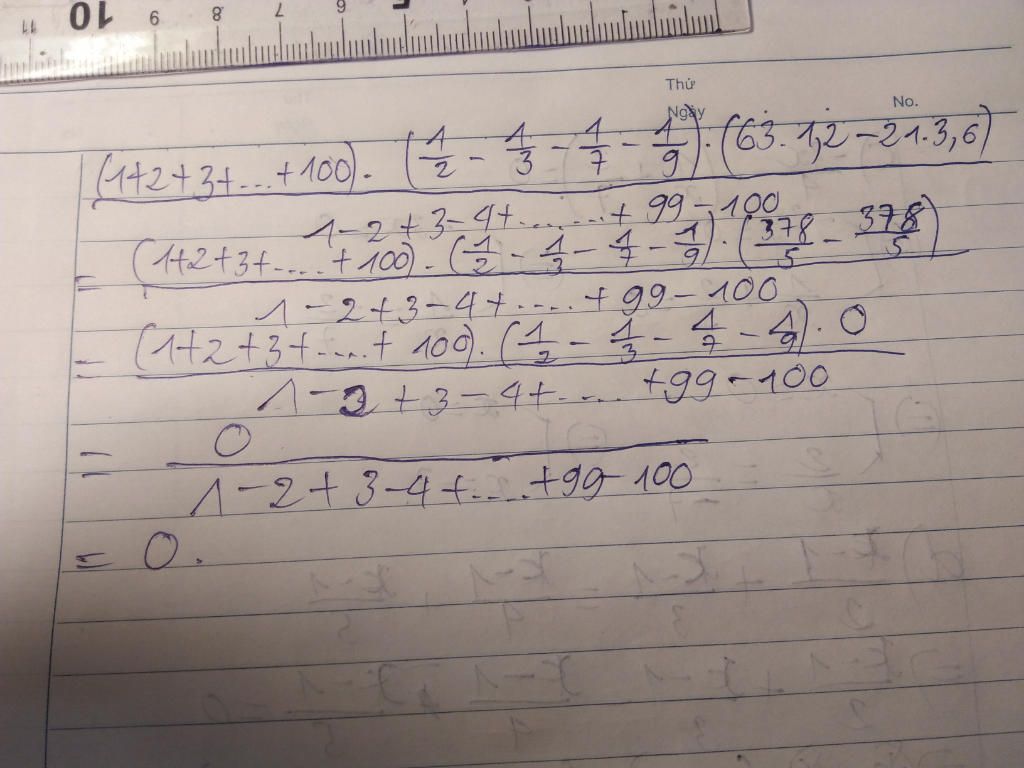 11 10 9 8 7 6 5
Thứ
Ngày No.
(1+2+3+...+100).(1/2 - 1/3 - 1/7 - 1/9).(63.1,2 - 21.3,6)
1-2+3-4+......+99-100
= (1+2+3+....+100).(1/2 - 1/3 - 1/7 - 1/9).(378/5 - 378/5)
1-2+3-4+....+99-100
= (1+2+3+....+100).(1/2 - 1/3 - 1/7 - 1/9).0
1-2+3-4+....+99-100
= 0
1-2+3-4+....+99-100
= 0.